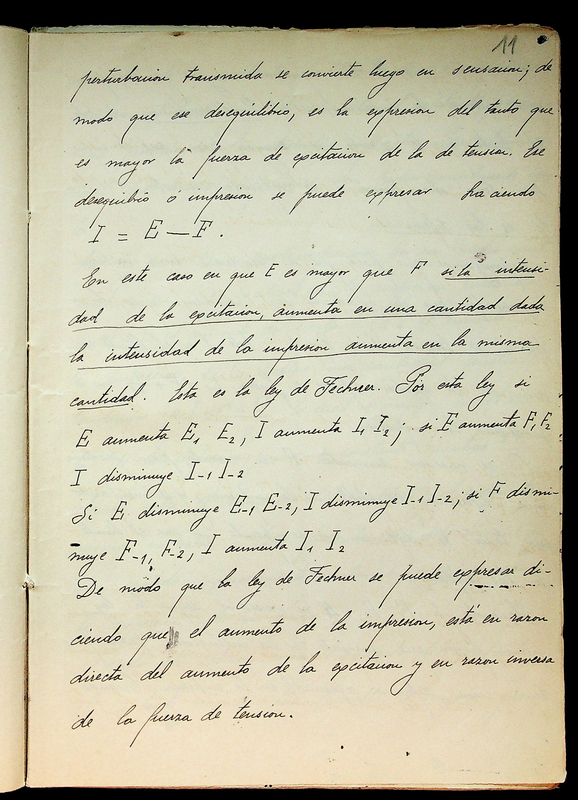 11
perturbacion transmida se convierte luego en sensacion; de
modo que ese desequilibrio, es la expresion del tanto que
es mayor la fuerza de excitacion de la de tension. Ese
desequilibrio ó impresion se puede expresar haciendo
I = E — F.
En este caso en que E es mayor que F si la intensi-
dad de la excitacion, aumenta en una cantidad dada
la intensidad de la impresion aumenta en la misma
cantidad. Esta es la ley de Fechner. Por esta ley si
E aumenta E1 E2, I aumenta I1 I2; si F aumenta F1 F2
I disminuye I-1 I-2
Si E disminuye E-1 E-2, I disminuye I-1 I-2; si F dismi-
nuye F-1, F-2, I aumenta I1 I2
De modo que la ley de Fechner se puede expresar di-
ciendo que el aumento de la impresion, está en razon
directa del aumento de la excitacion y en razon inversa
de la fuerza de tension.